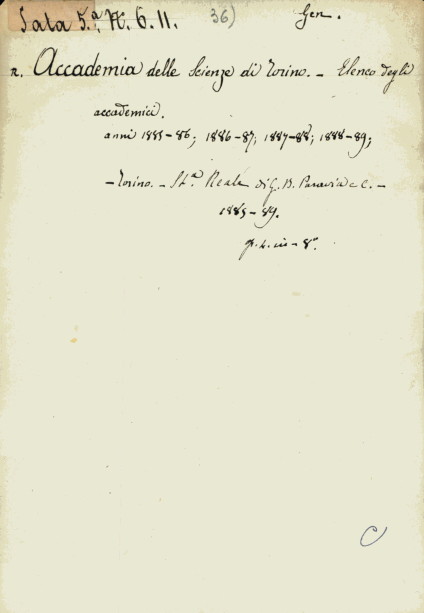 Sala 5.ª K. 6. 11. 36) Gen.
n. Accademia delle Scienze di Torino. - Elenco degli
accademici.
anni 1885-86; 1886-87; 1887-88; 1888-89;
- Torino. - St.ª Reale di G. B. Paravia e C. -
1885-89.
in-8°.
C